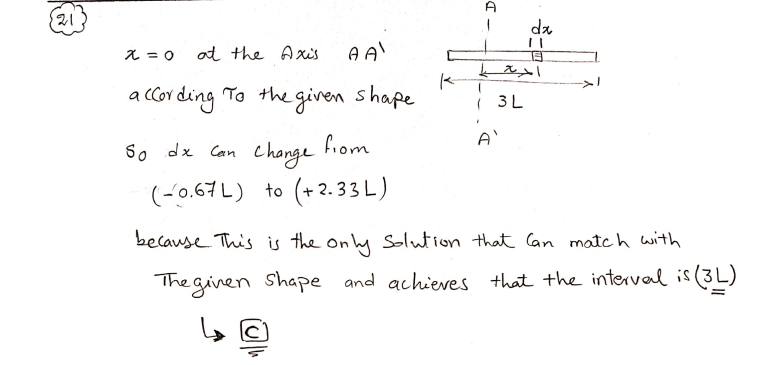 21
x = 0 at the Axis AA'
according To the given shape
So dx can change from
(-0.67L) to (+2.33L)
because This is the only Solution that Can match with
The given Shape and achieves that the interval is (3L)
↳ C
A
dx
x
3L
A'